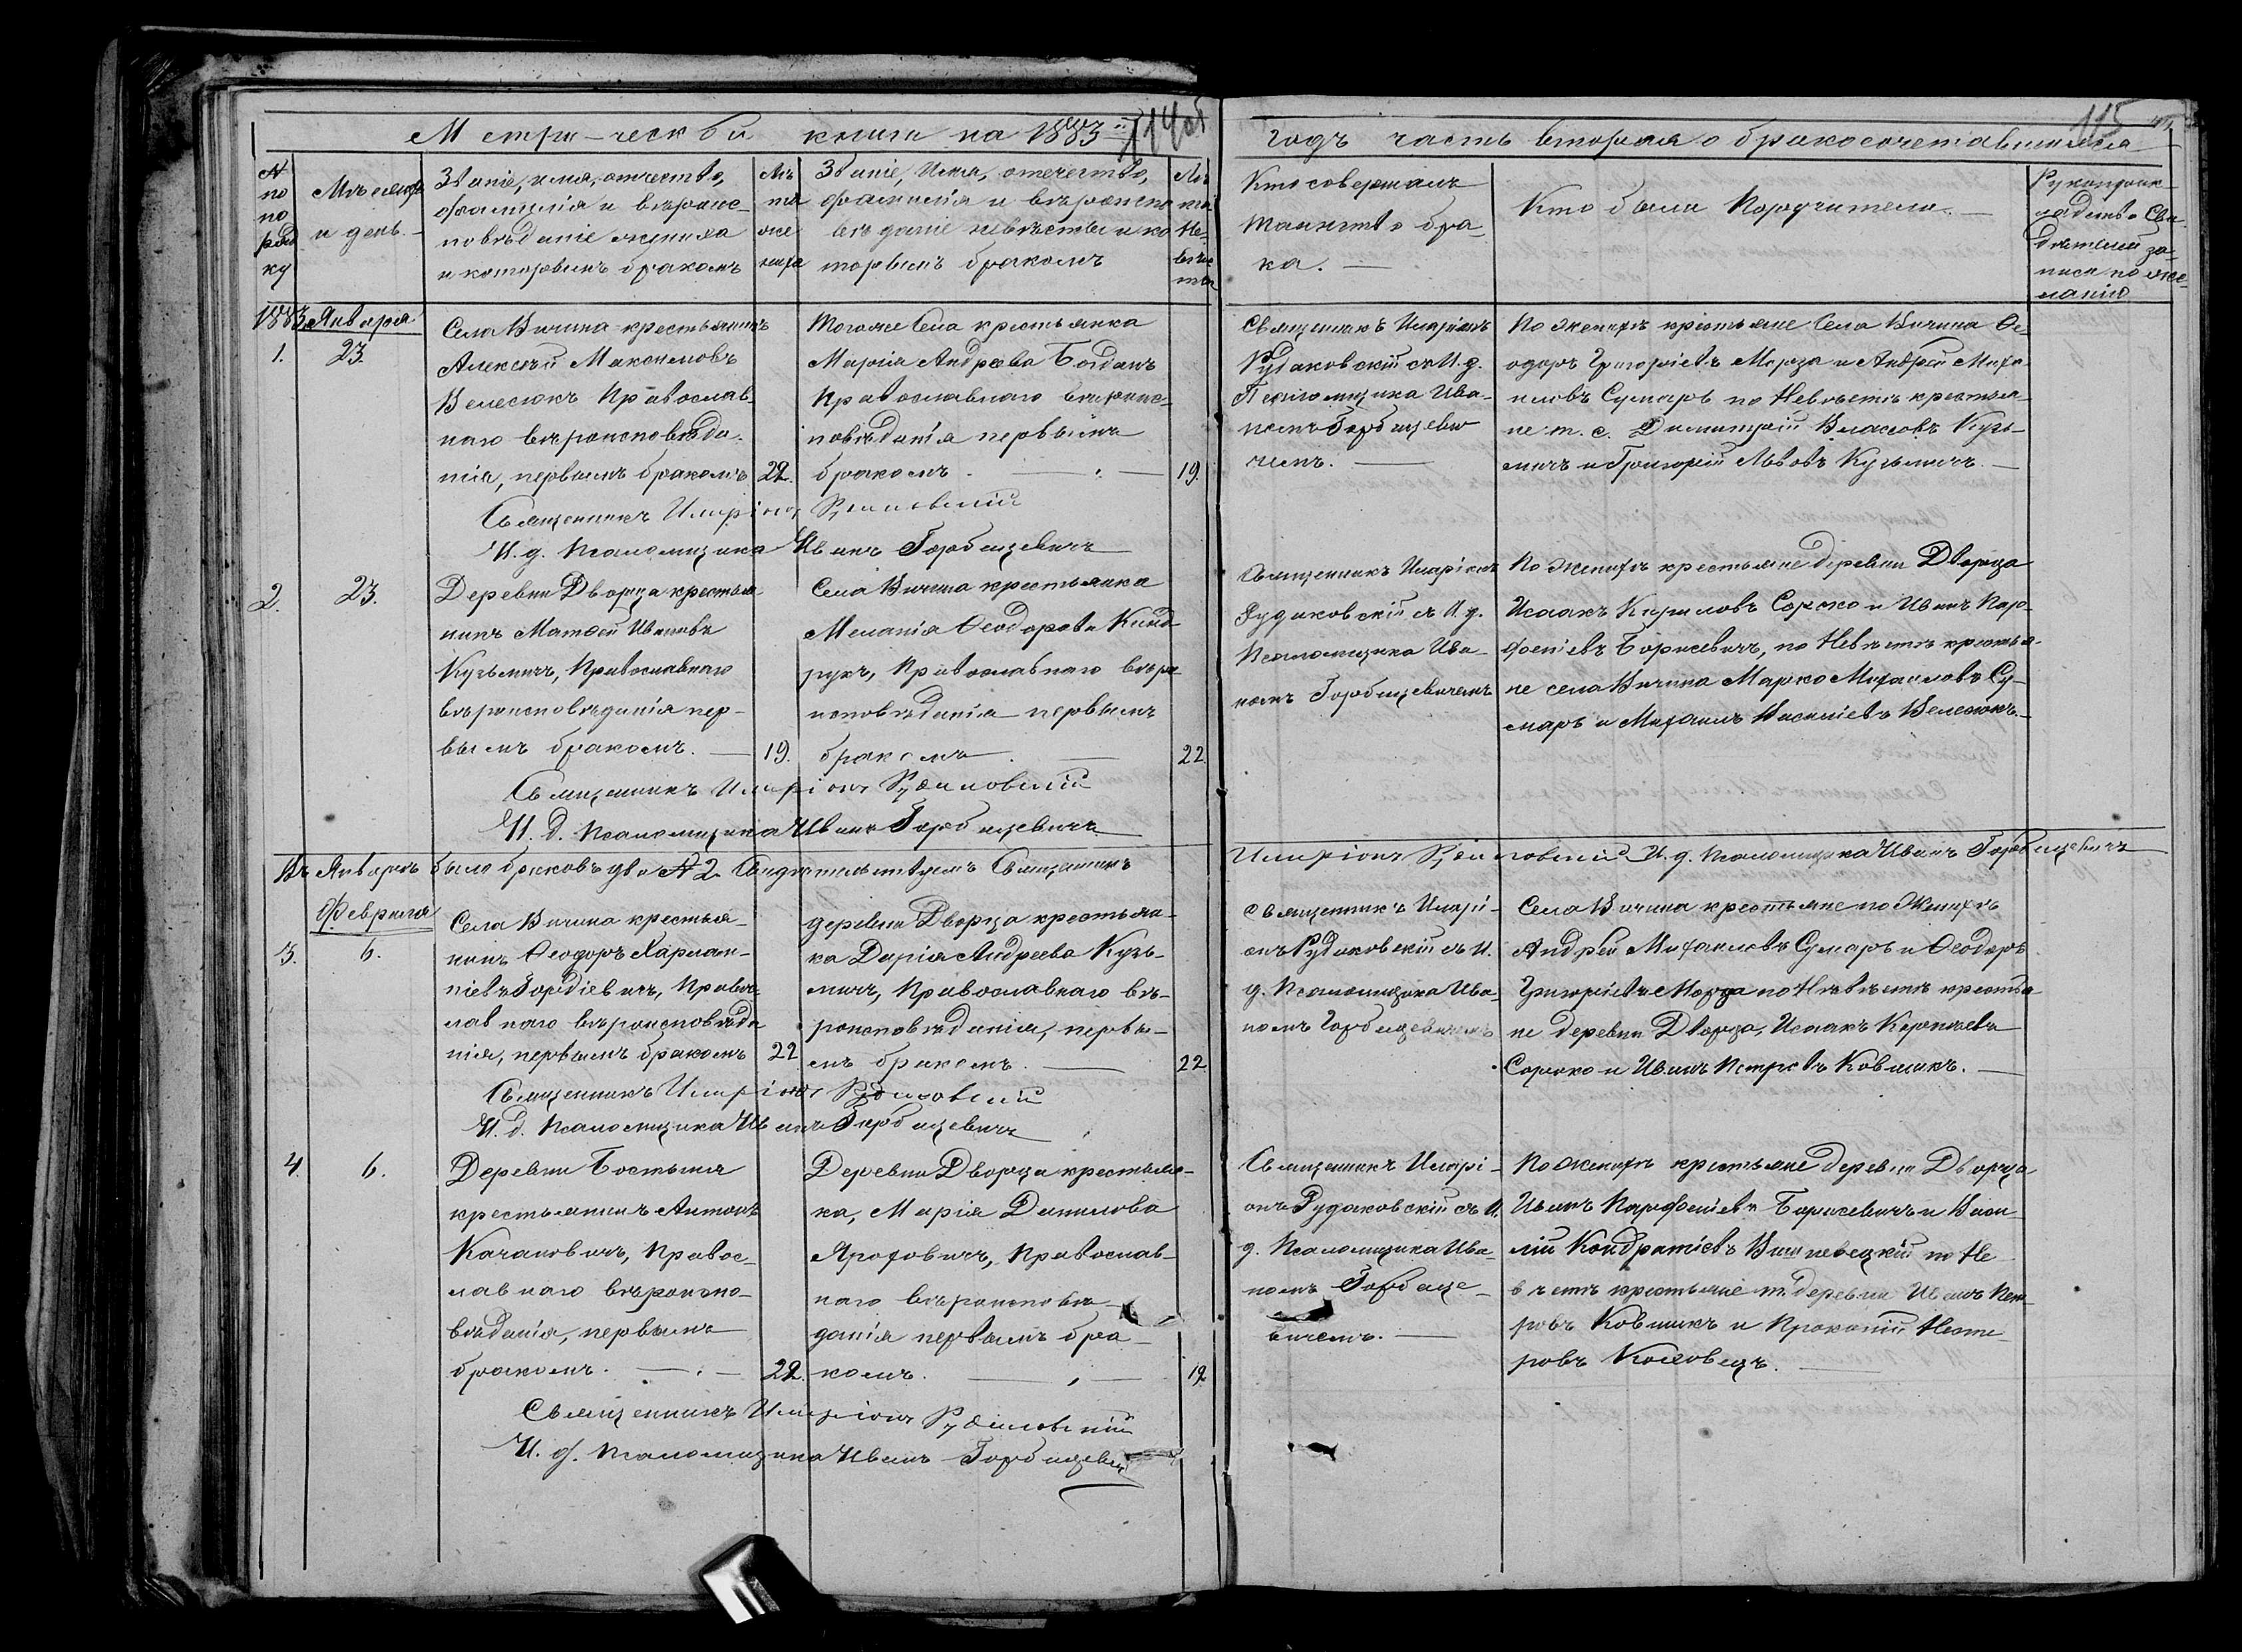 Метрической книги на 1883й
114об
годъ часть вторая о бракосочетавшихся
115
№ по порядку
Мѣсяцъ и день.
Званіе, имя, отчество,
фамилія и вѣроис-
повѣданіе жениха
и которымъ бракомъ
Лѣта жениха
Званіе, Имя, отечество,
фамилія и вѣроиспо
вѣданіе невѣсты и ко
торымъ бракомъ
Лѣта Невѣсты
Кто совершалъ
таинство бра-
ка.
Кто были Поручители.
Рукоприк-
ладство Сви
дѣтелей за-
писи по же-
ланію
1883. Января
1.
23.
Села Вичина крестьянинъ
Алексѣй Максимовъ
Велесюкъ Православ-
наго вѣроисповѣда-
нія, первымъ бракомъ
22.
Тогоже Села крестьянка
Марія Андреева Богданъ
Православнаго вѣроис-
повѣданія первымъ
бракомъ.
19.
Священникъ Иларіонъ
Рудаковскій съ И. д.
Псаломщика Ива-
номъ Горбацеви
чемъ.
По женихѣ крестьяне Села Вичина Ѳе-
одоръ Григоріевъ Мерза и Андрей Миха
иловъ Сумаръ по Невѣстѣ крестья-
не т. с. Димитрій Власовъ Кузь-
мичъ и Григорій Львовъ Кузьмичъ.
Священникъ Иларіонъ Рудаковскій
И. д. Псаломщика Иванъ Горбацевичъ
2.
23.
Деревни Дворца крестья
нинъ Матѳей Ивановъ
Кузьмичъ, Православнаго
вѣроисповѣданія пер-
вымъ бракомъ.
19.
Села Вичина крестьянка
Меланія Ѳеодорова Кинд
рукъ, Православнаго вѣро
исповѣданія первымъ
бракомъ.
22.
Священникъ Иларіонъ
Рудаковскій съ И. д.
Псаломщика Ива-
номъ Горбацевичемъ
По женихѣ крестьяне деревни Дворца
Исаакъ Кириловъ Сороко и Иванъ Пар-
феніевъ Борисевичъ, по Невѣстѣ крестья-
не села Вичина Марко Михаиловъ Су-
маръ и Михаилъ Василіевъ Велесюкъ.
Священникъ Иларіонъ Рудаковскій
И. д. Псаломщика Иванъ Горбацевичъ
Въ Январѣ было браковъ два № 2. Свидѣтельствуетъ Священникъ
Иларіонъ Рудаковскій И. д. Псаломщика Иванъ Горбацевичъ
Февраля
3.
6.
Села Вичина крестья-
нинъ Ѳеодоръ Харлам-
піевъ Гордіевичъ, Правос-
лавнаго вѣроисповѣда
нія, первымъ бракомъ
22
деревни Дворца крестьян-
ка Дарія Андреева Кузь-
мичъ, Православнаго вѣ-
роисповѣданія, первы-
мъ бракомъ.
22
священникъ Иларі-
онъ Рудаковскій съ И.
д. Псаломщика Ива-
номъ Горбацевичемъ
Села Вичина крестьяне по Женихѣ
Андрей Михаиловъ Сумаръ и Ѳеодоръ
Григоріевъ Мерза по Невѣстѣ крестья-
не деревни Дворца, Исаакъ Кириловъ
Сороко и Иванъ Петровъ Ковшикъ.
Священникъ Иларіонъ Рудаковскій
И. д. Псаломщика Иванъ Горбацевичъ
4.
6.
Деревни Бостыня
крестьянинъ Антонъ
Качановичъ, Правос-
лавнаго вѣроиспо-
вѣданія, первымъ
бракомъ.
22.
Деревни Дворца крестьян-
ка, Марія Данилова
Ярофовичъ, Православ-
наго вѣроисповѣ-
данія первымъ бра-
комъ.
19
Священникъ Иларі-
онъ Рудаковскій съ И.
д. Псаломщика Ива-
номъ Горбаце-
вичемъ.
По женихѣ крестьяне деревни Дворца
Иванъ Парфеніевъ Борисевичъ и Васи-
лій Кондратіевъ Вишневецкій по Не-
вѣстѣ крестьяне т. деревни Иванъ Пет-
ровъ Ковшикъ и Прокопій Несте-
ровъ
Священникъ Иларіонъ Рудаковскій
И. д. Псаломщика Иванъ Горбацевичъ